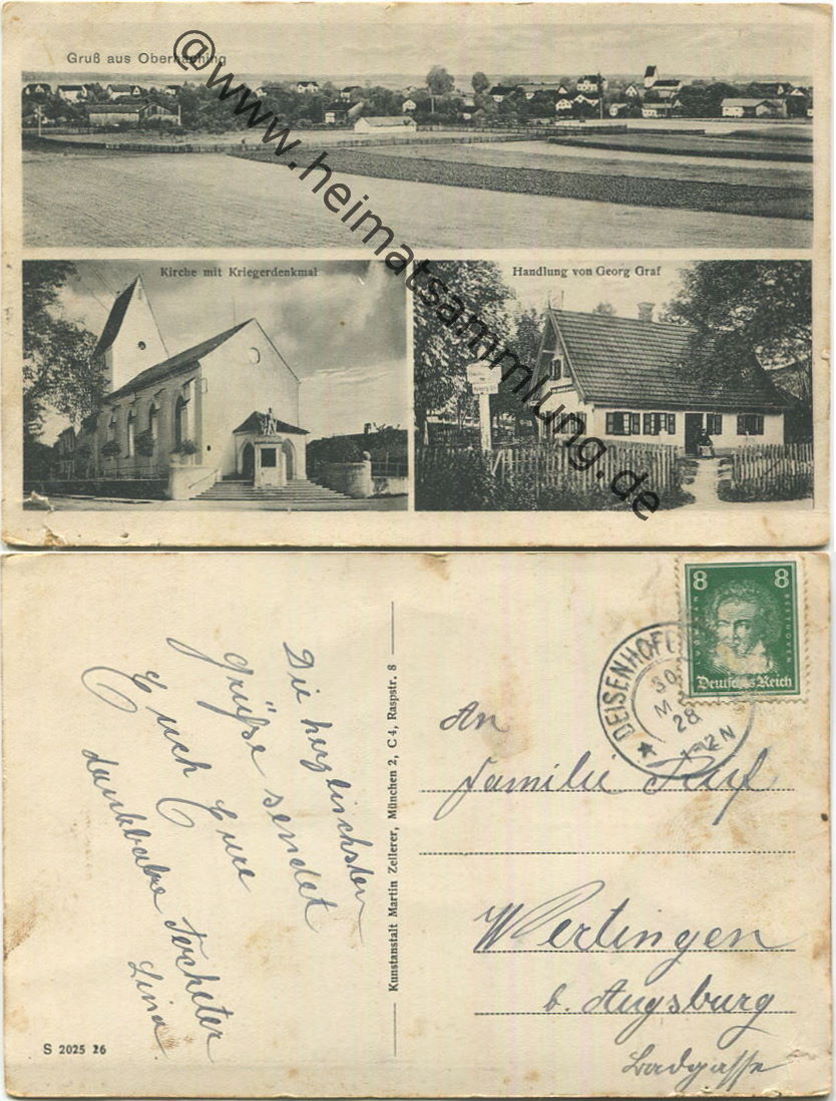 Gruß aus Oberhaching
@www.heimatsammlung.de
Kirche mit Kriegerdenkmal
Handlung von Georg Graf
Die herzlichsten
Grüße sendet
Euch Eure
dankbare Tocheter
Lina
S 2025 26
Kunstanstalt Martin Zeilerer, München 2, C 4, Raspstr. 8
8 8
BEETHOVEN
Deutsches Reich
DEISENHOFEN
30
M
28
1-2N
An
Familie Ruf
Wertingen
b. Augsburg
Badgasse